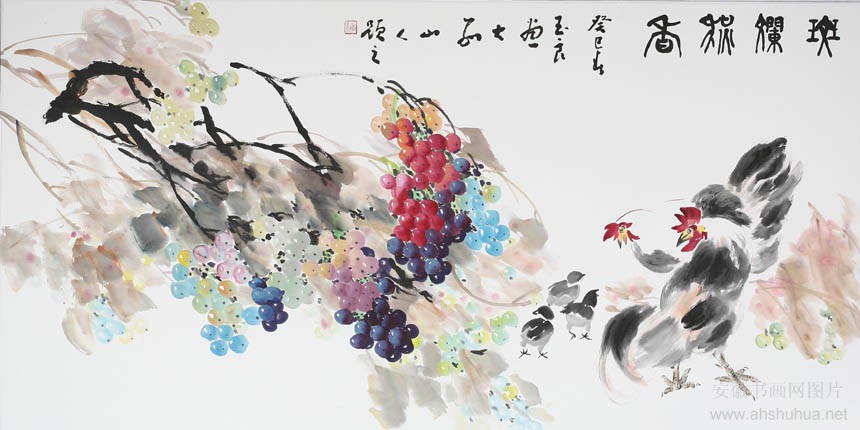 斑斓秋香
癸巳春
玉良
画
大
山人
题之
安徽书画网图片
www.ahshuhua.net